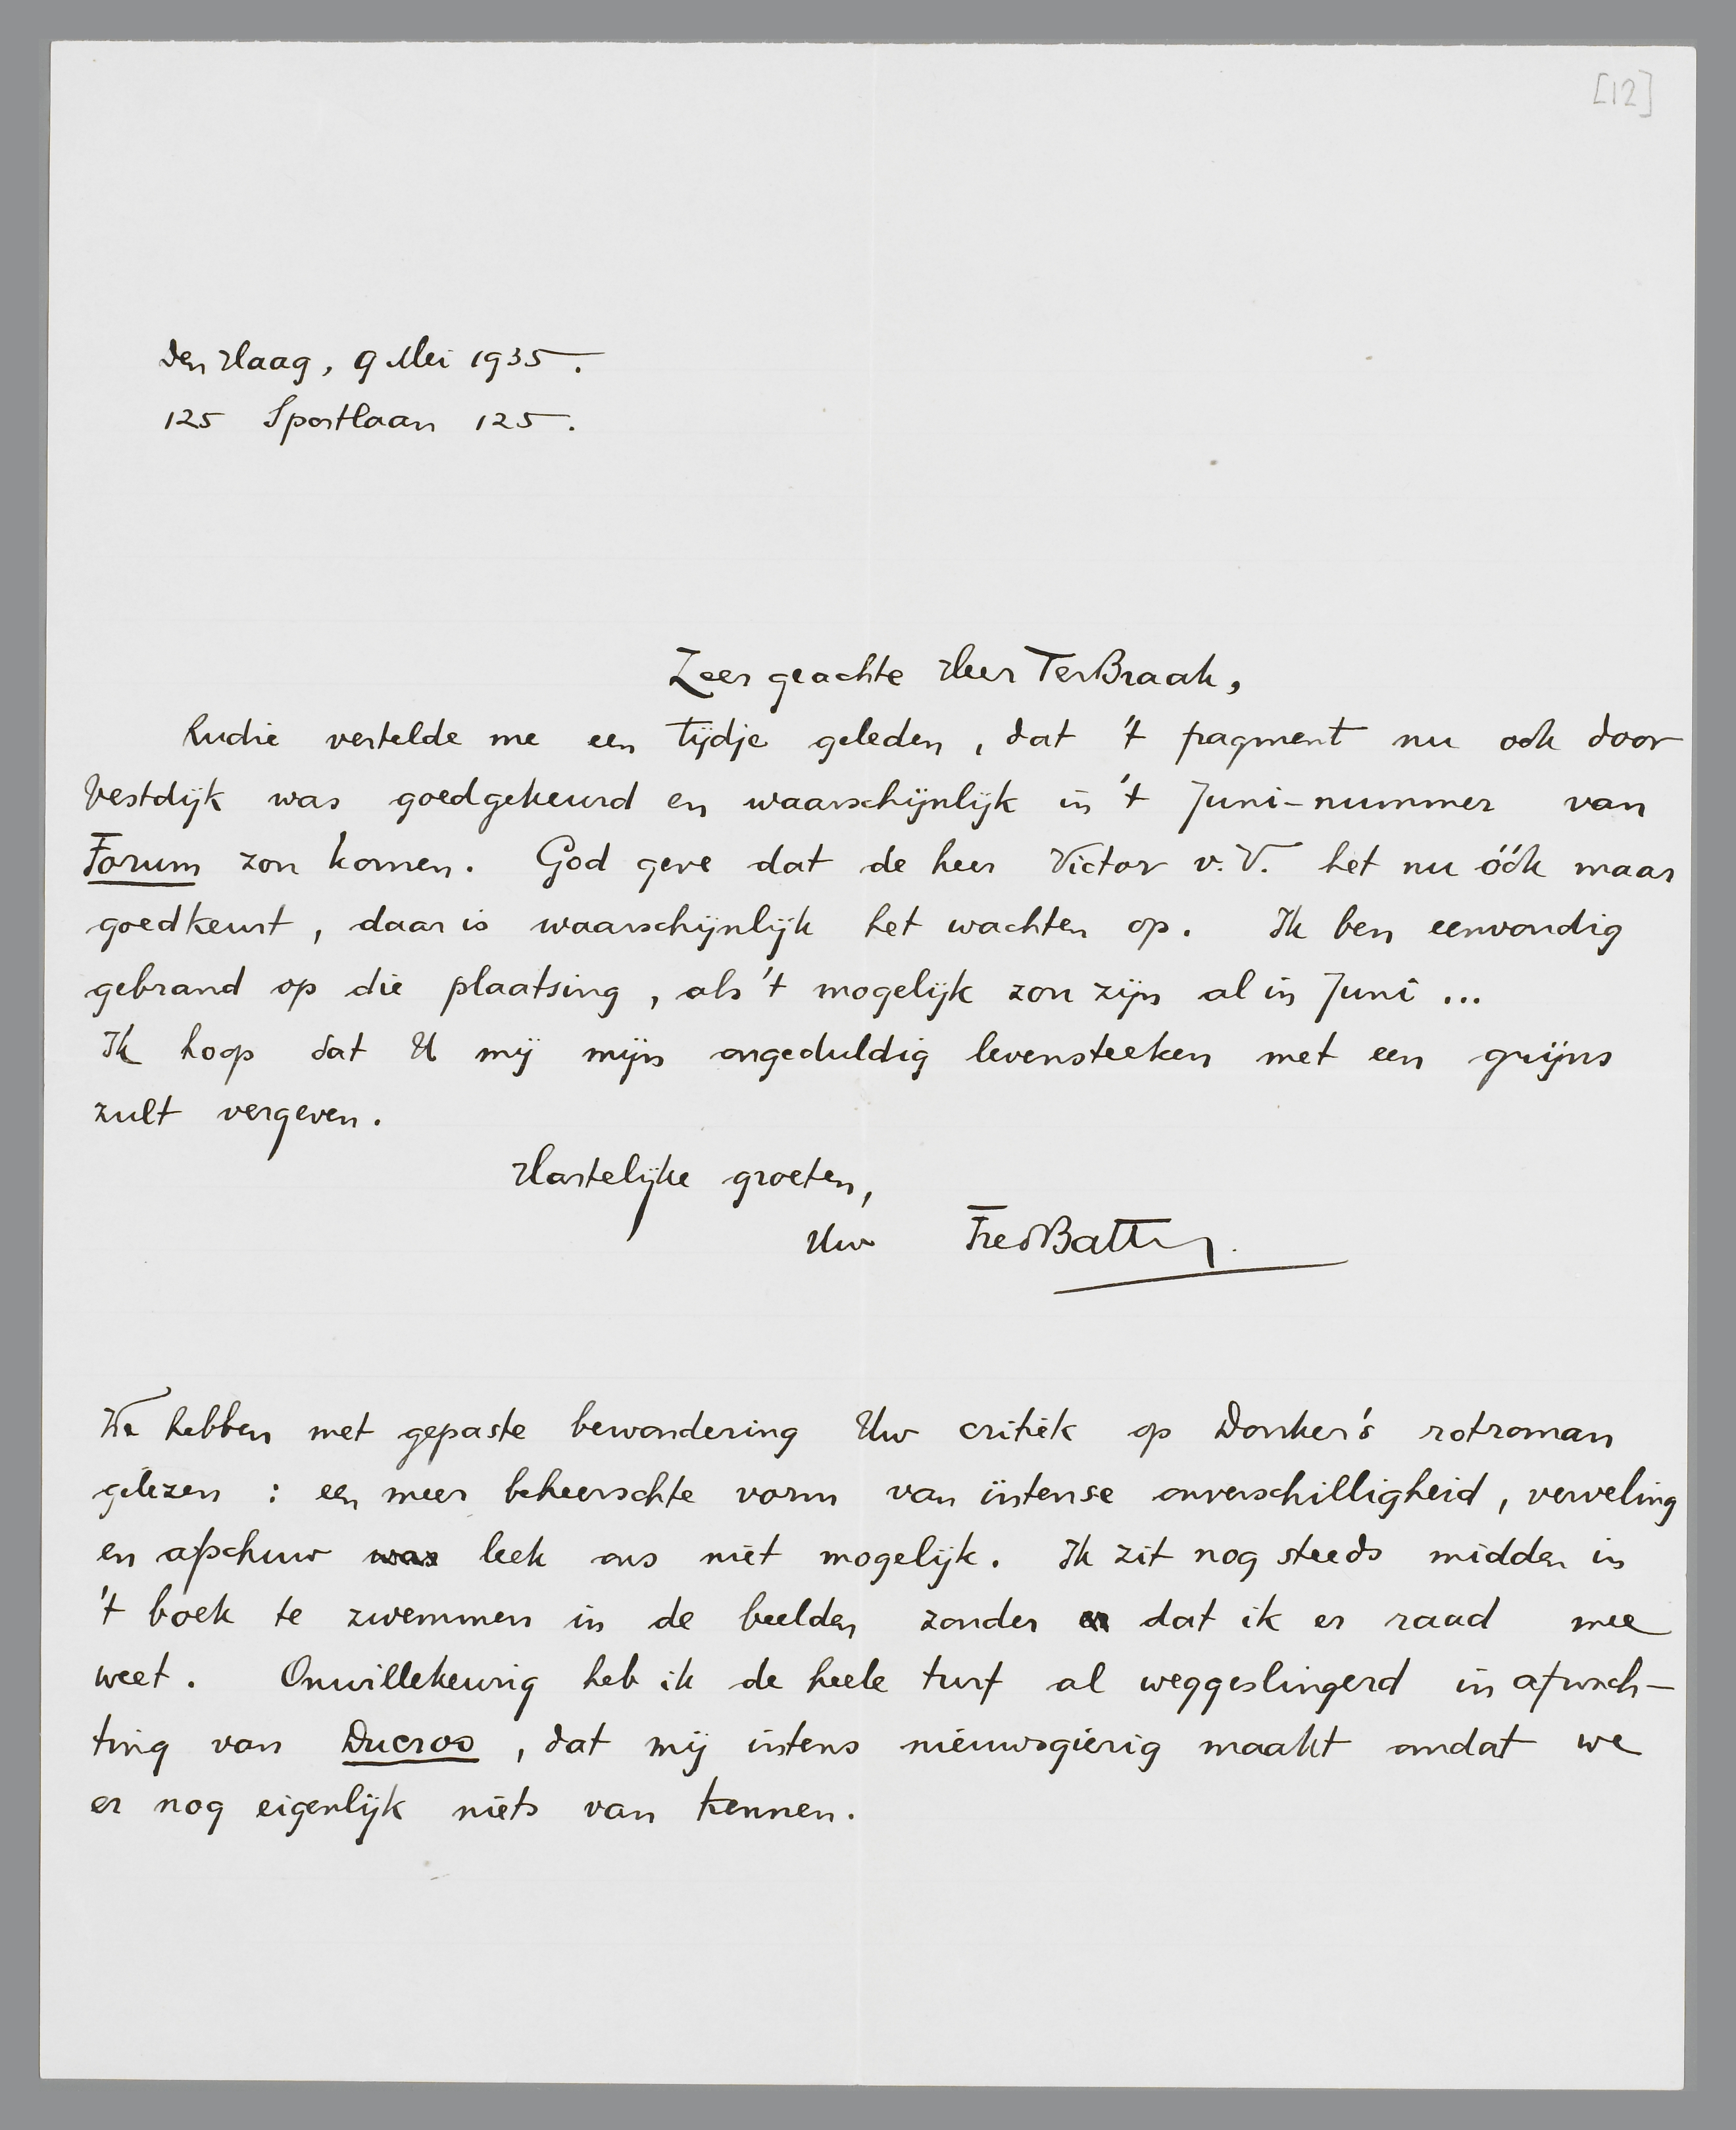 [12]
den Haag, 9 Mei 1935.
125 Sportlaan 125.
Zeer geachte Heer Ter Braak,
Rudie vertelde me een tijdje geleden, dat 't fragment nu ook door
Vestdijk was goedgekeurd en waarschijnlijk in 't Juni-nummer van
Forum zou komen. God geve dat de heer Victor v. V. het nu óók maar
goedkeurt, daar is waarschijnlijk het wachten op. Ik ben eenvoudig
gebrand op die plaatsing, als 't mogelijk zou zijn al in Juni ...
Ik hoop dat U mij mijn ongeduldig levensteeken met een grijns
zult vergeven.
Hartelijke groeten,
Uw FredBatten.
We hebben met gepaste bewondering Uw critiek op Donker's rotroman
gelezen : een meer beheerschte vorm van intense onverschilligheid, verveling
en afschuw was leek ons niet mogelijk. Ik zit nog steeds midden in
't boek te zwemmen in de beelden zonder er dat ik er raad mee
weet. Onwillekeurig heb ik de heele turf al weggeslingerd in afwach-
ting van Ducroo, dat mij intens nieuwsgierig maakt omdat we
er nog eigenlijk niets van kennen.